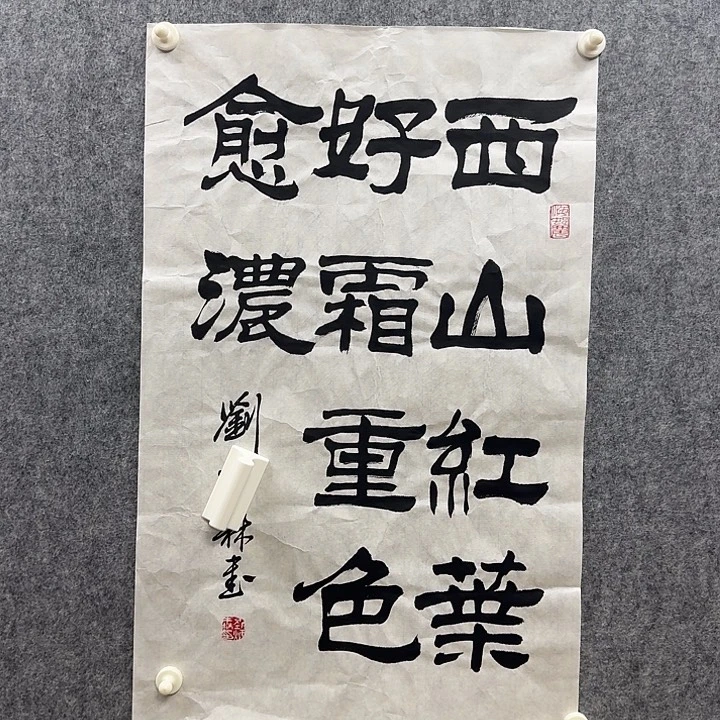 西山紅葉
好霜重色
愈濃
劉 林書